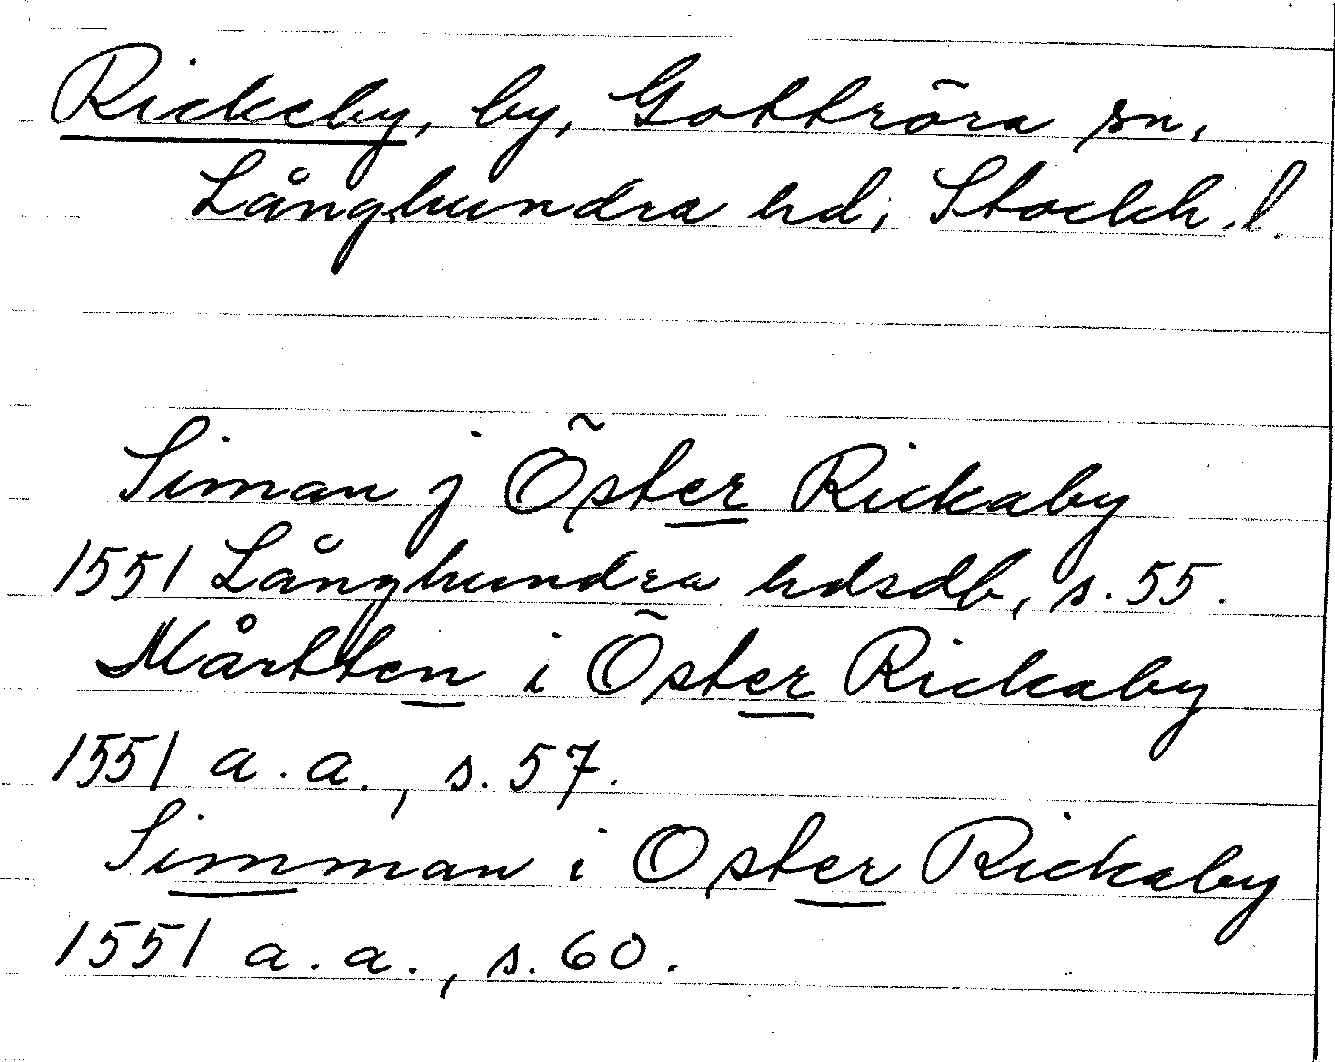 Rickeby, by, Gottröra sn,
Långhundra hd, Stockh. l.
Siman j Öster Rickaby
1551 Långhundra hdsdb, s. 55.
Mårtten i Öster Rickaby
1551 a. a., s. 57.
Simman i Oster Rickaby
1551 a. a., s. 60.